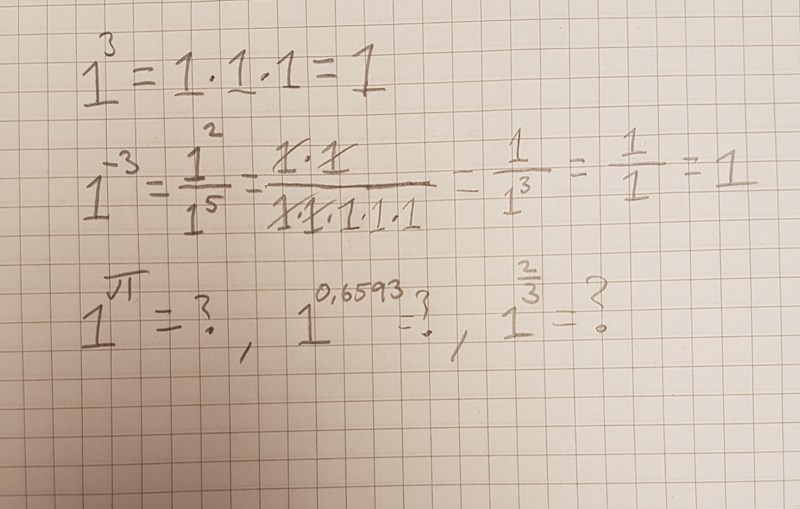 1³ = 1·1·1 = 1
1⁻³ = 1²/1⁵ = 1·1/1·1·1·1·1 = 1/1³ = 1/1 = 1
1^π = ?, 1^0,6593 = ?, 1^2/3 = ?